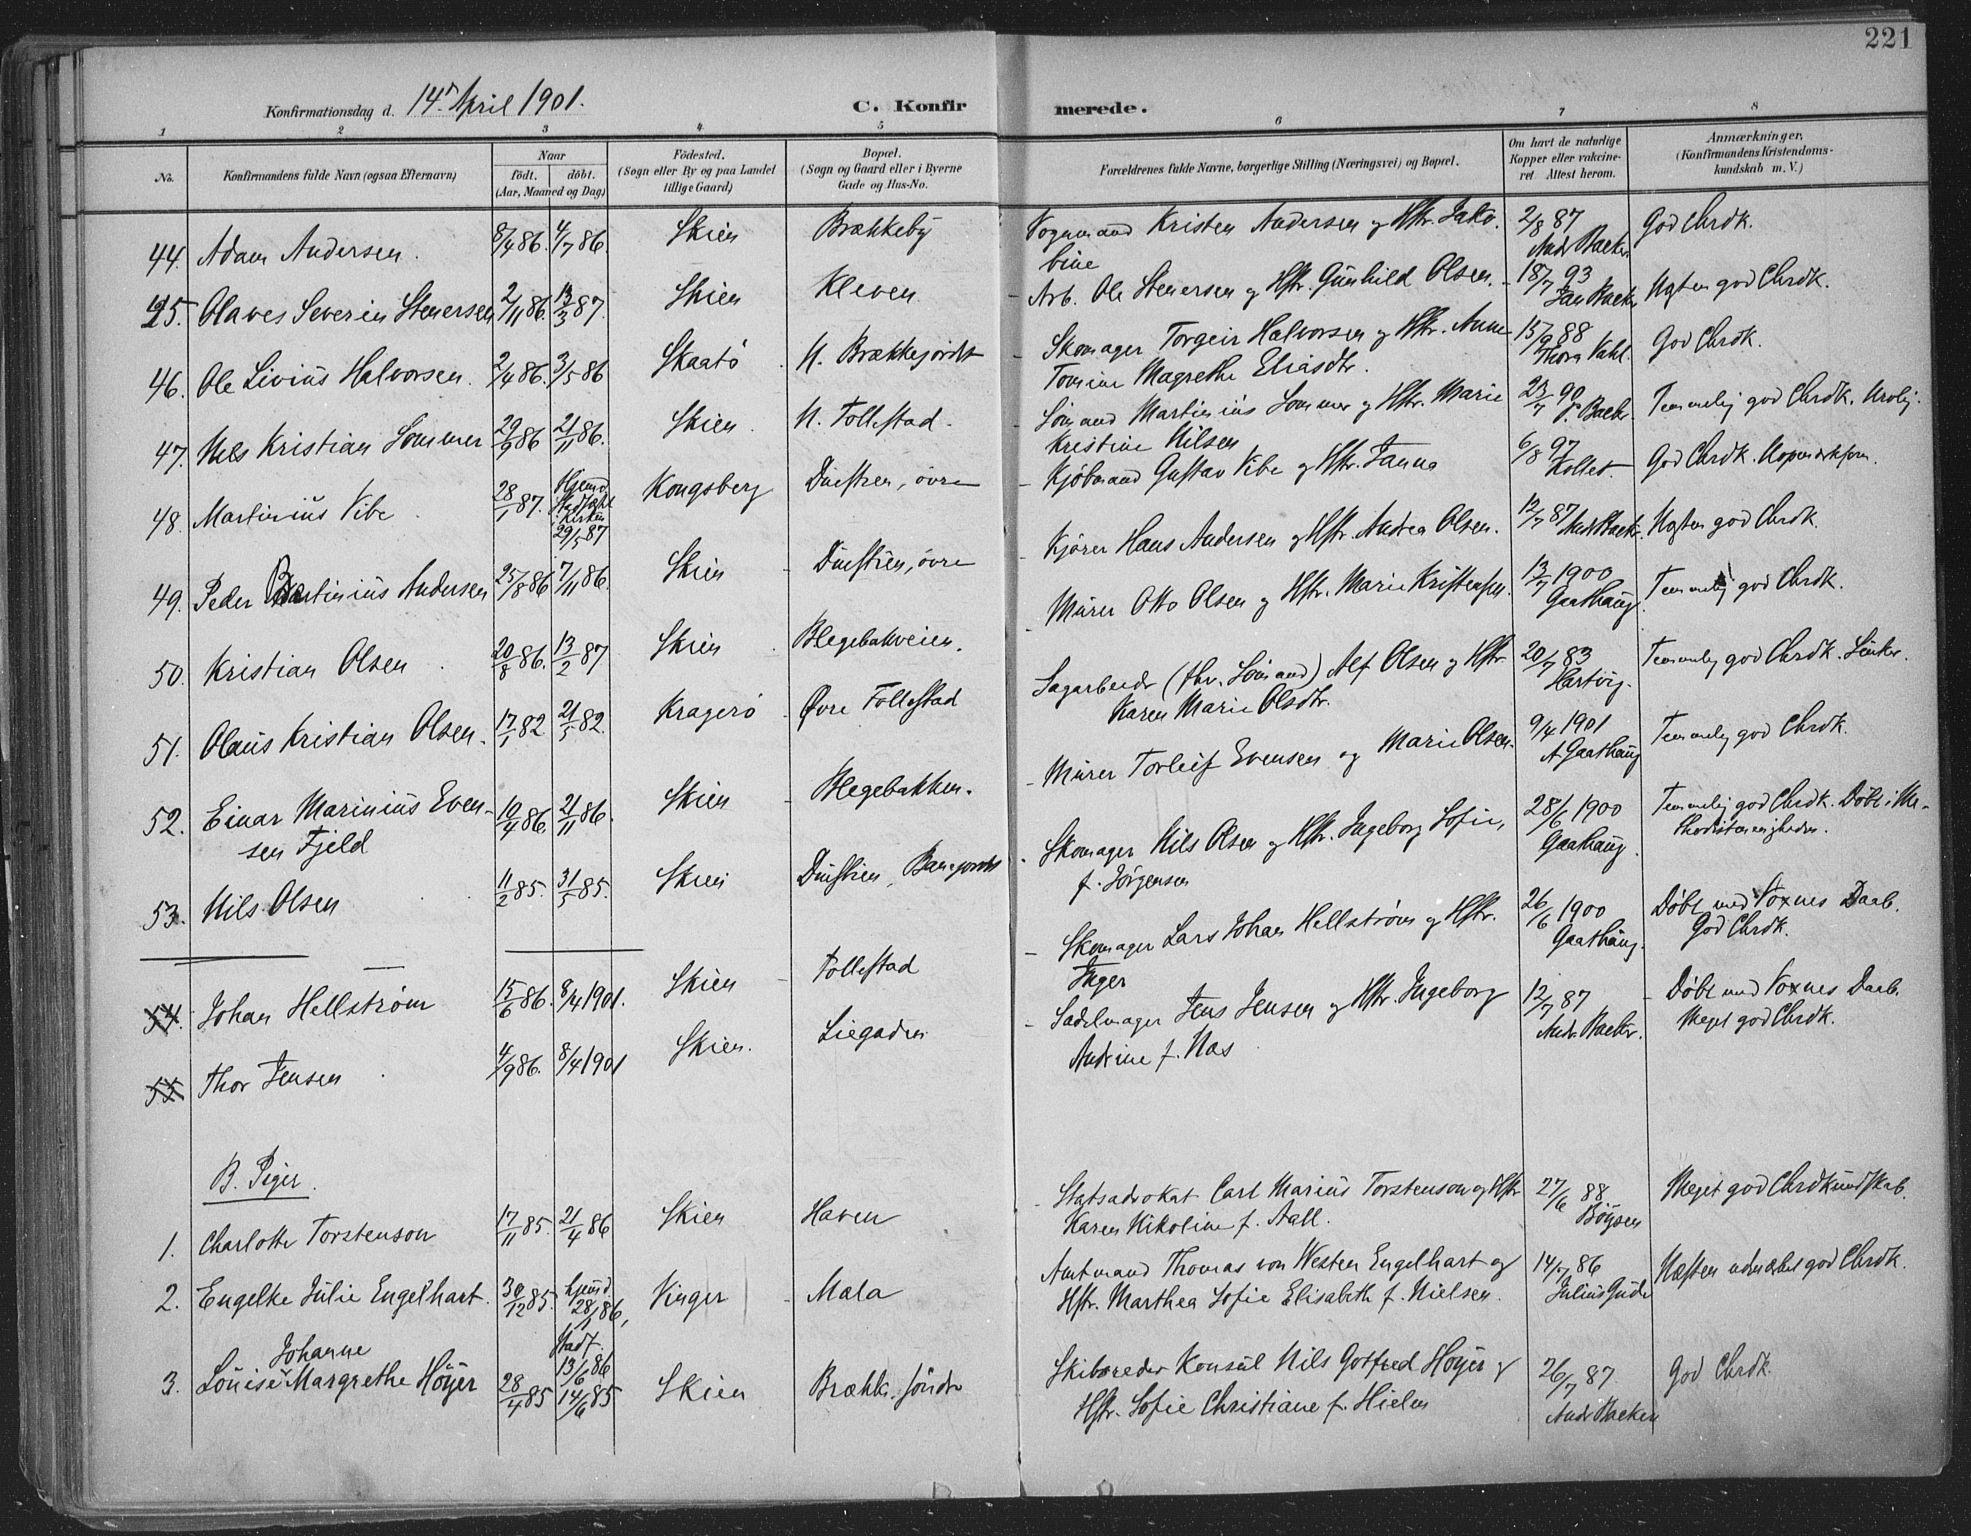 221
Konfirmationsdag d. 14de April 1901.
C. Konfirmerede.
1 2 3 4 5 6 7 8
No. Konfirmandens fulde Navn (ogsaa Efternavn) Naar født. døbt. (Aar, Maaned og Dag) Fødested. (Sogn eller By og paa Landet tillige Gaard) Bopæl. (Sogn og Gaard eller i Byerne Gade og Hus-No. Forældrenes fulde Navne, borgerlige Stilling (Næringsvei) og Bopæl. Om havt de naturlige Kopper eller vakcineret. Attest herom. Anmærkninger. (Konfirmandens Kristendomskundskab m. V.)
44. Adam Andersen. 8/4 86. 4/7 86. Skien Brækkeby Vognmand Kristen Andersen og Hstr. Jako- 2/8 87 God Chrdk.
bine Andr. Backer
45. Olaves Severin Stenersen 2/11 86. 13/3 87. Skien Kleven Arb. Ole Stenersen og Hstr. Gunhild Olsen. 18/7 93 Nogten god Chrdk.
46. Ole Livius Halvorsen. 2/4 86. 3/5 86 Skaatø N. Brækkejordet Skomager Torgeir Halvorsen og Hstr. Anne 15/9 88 God Chrdk.
Tomine Magrethe Eliasdtr. Thorn Vahl.
47. Nils Kristian Sommer 29/9 86 21/11 86. Skien. N. Follestad. Sømand Martinius Sommer og Hstr. Marie 23/7 90 Temmelig god Chrdk. Urolig.
Kristine Nilsen
48. Martinius Vibe 28/1 87. Hjemd. Stadfæst i Kirken 29/5 87 Kongsberg Duestien, øvre Kjøbmand Gustav Vibe og Hstr. Fanna 6/8 97 God Chrdk. Uopmærksom.
49. Peder Bertinius Andersen 25/8 86 7/11 86. Skien Duestien, øvre Kjører Hans Andersen og Hstr. Andrea Olsen. 12/7 87 Andr. Backer. Nogten god Chrdk.
50. Kristian Olsen 20/8 86. 13/2 87 Skien Blegebakveien. Murer Otto Olsen og Hstr. Marie Kristensen. 13/7 1900 Temmelig god Chrdk.
Gaathaug
51. Olaus Kristian Olsen. 17/1 82 21/5 82. Kragerø Øvre Follestad Sagarbeider (fhv. Sømand) Alf Olsen og Hstr 20/7 83 Temmelig god Chrdk. Sinker.
Karen Marie Olsdtr. Hartvig.
52. Einar Marinius Even- 10/4 86. 21/11 86. Skien Blegebakken. Murer Torleif Evensen og Marie Olsen. 9/4 1901 Temmelig god Chrdk.
sen Fjeld A. Gaathaug
53. Nils Olsen 11/2 85. 31/5 85. Skien Duestien, Banejordet Skomager Nils Olsen og Hstr. Ingeborg Sofie, 28/6 1900 Temmelig god Chrdk. Døbt i Me-
f. Jörgensen Gaathaug. thodistmenigheden.
54. Johan Hellstrøm 15/6 86. 8/4 1901. Skien Follestad Skomager Lars Johan Hellstrøm og Hstr. 26/6 1900 Døbt med Voxnes Daab.
Inger Gaathaug. God Chrdk.
55 Thor Jensen 4/9 86. 8/4 1901 Skien. Liegaden Sadelmager Jens Jensen og Hstr. Ingeborg 12/7 87 Døbt med Voxnes Daab.
Andrine f. Næs Andr. Backer. Meget god Chrdk.
B. Piger.
1. Charlotte Torstenson 17/11 85. 21/4 86 Skien Haven Statsadvokat Carl Marius Torstenson og Hstr 27/6 88 Meget god Chrdkundskab.
Karen Nikoline f. Aall. Böysen
2. Engelke Julie Engelhart. 30/12 85. hjemd. 28/1 86, Stadf. 13/6 86 Vinger Mæla Amtmand Thomas von Westen Engelhart og 14/7 86 Næsten udmærket god Chrdk.
Hstr. Marthea Sofie Elisabeth f. Nielsen. Julius Gude
Johanne
3. Louise Margrethe Höyer 28/4 85 14/6 85 Skien Brække, søndre Skibsreder Konsul Nils Gotfred Höyer og 26/7 87 God Chrdk.
Hstr. Sofie Christiane f. Hielm Andr Backer